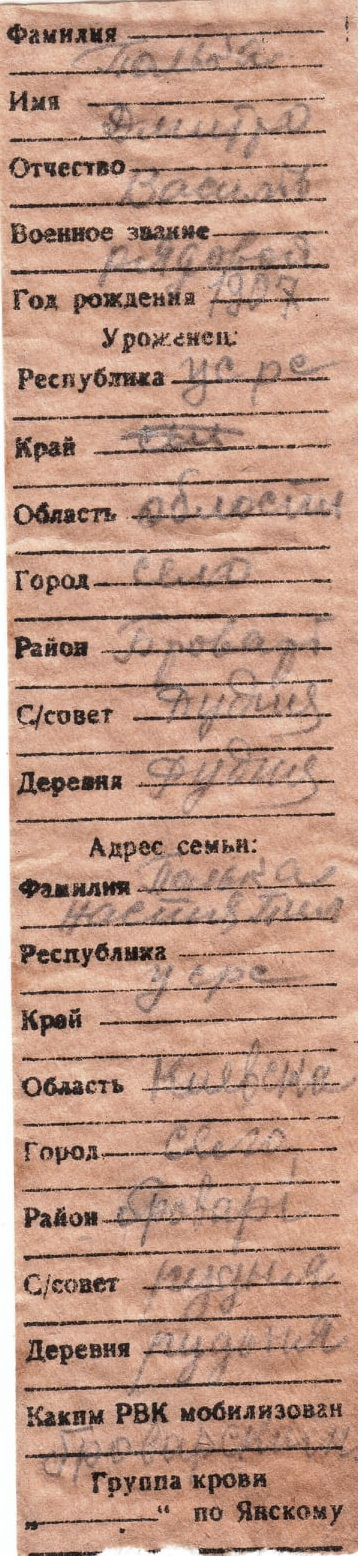 Фамилия
Имя Дмитро
Отчество Василів
Военное звание
рядовой
Год рождения 1907
Уроженец:
Республика усрс
Край
Область области
Город село
Район Броварі
С/совет Рудния
Деревня Рудния
Адрес семьи:
Фамилия
Республика
усрс
Край
Область Киевска
Город село
Район Броварі
С/совет рудыня
Деревня рудыня
Каким РВК мобилизован
Группа крови
„ “ по Янскому